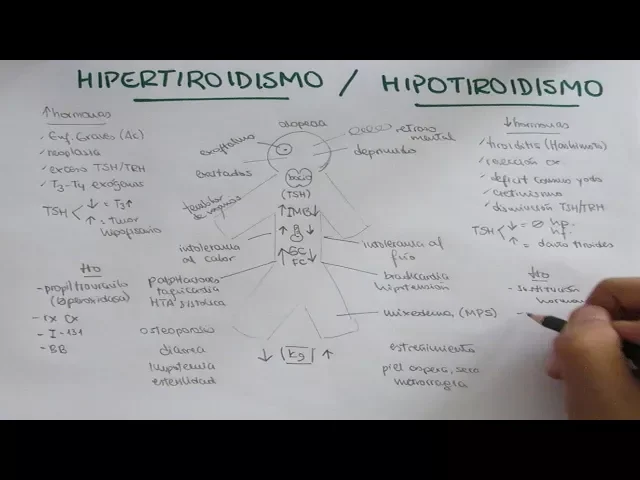 HIPERTIROIDISMO / HIPOTIROIDISMO
↑hormonas
✓Enf. Graves (Ac)
✓neoplasia
✓exceso TSH/TRH
✓T3-T4 exógenas
TSH < ↓ = T3↑
↑ = Tumor hipofisario
tto
- propiltiouracilo
(∅peroxidasa)
- rx Qx
- I-131
- BB
alopecia
exoftalmo
exaltados
temblor de manos
intolerancia
al calor
Palpitaciones
taquicardia
HTA sistólica
osteoporosis
diarrea
impotencia
esterilidad
bocio
(TSH)
↑IMB↓
↑ ↓
↑GC↓
FC
↓ Kg ↑
, retraso
mental
deprimido
intolerancia al
frío
bradicardia
hipotensión
mixedema (MPS)
estreñimiento
piel áspera, seca
metrorragia
↓hormonas
✓tiroiditis (Hashimoto)
✓resección Qx
✓déficit consumo yodo
✓cretinismo
✓disminución TSH/TRH
TSH < ↓ = ∅ hp. hf.
↑ = daño tiroides
tto
- sustitución
hormon
-